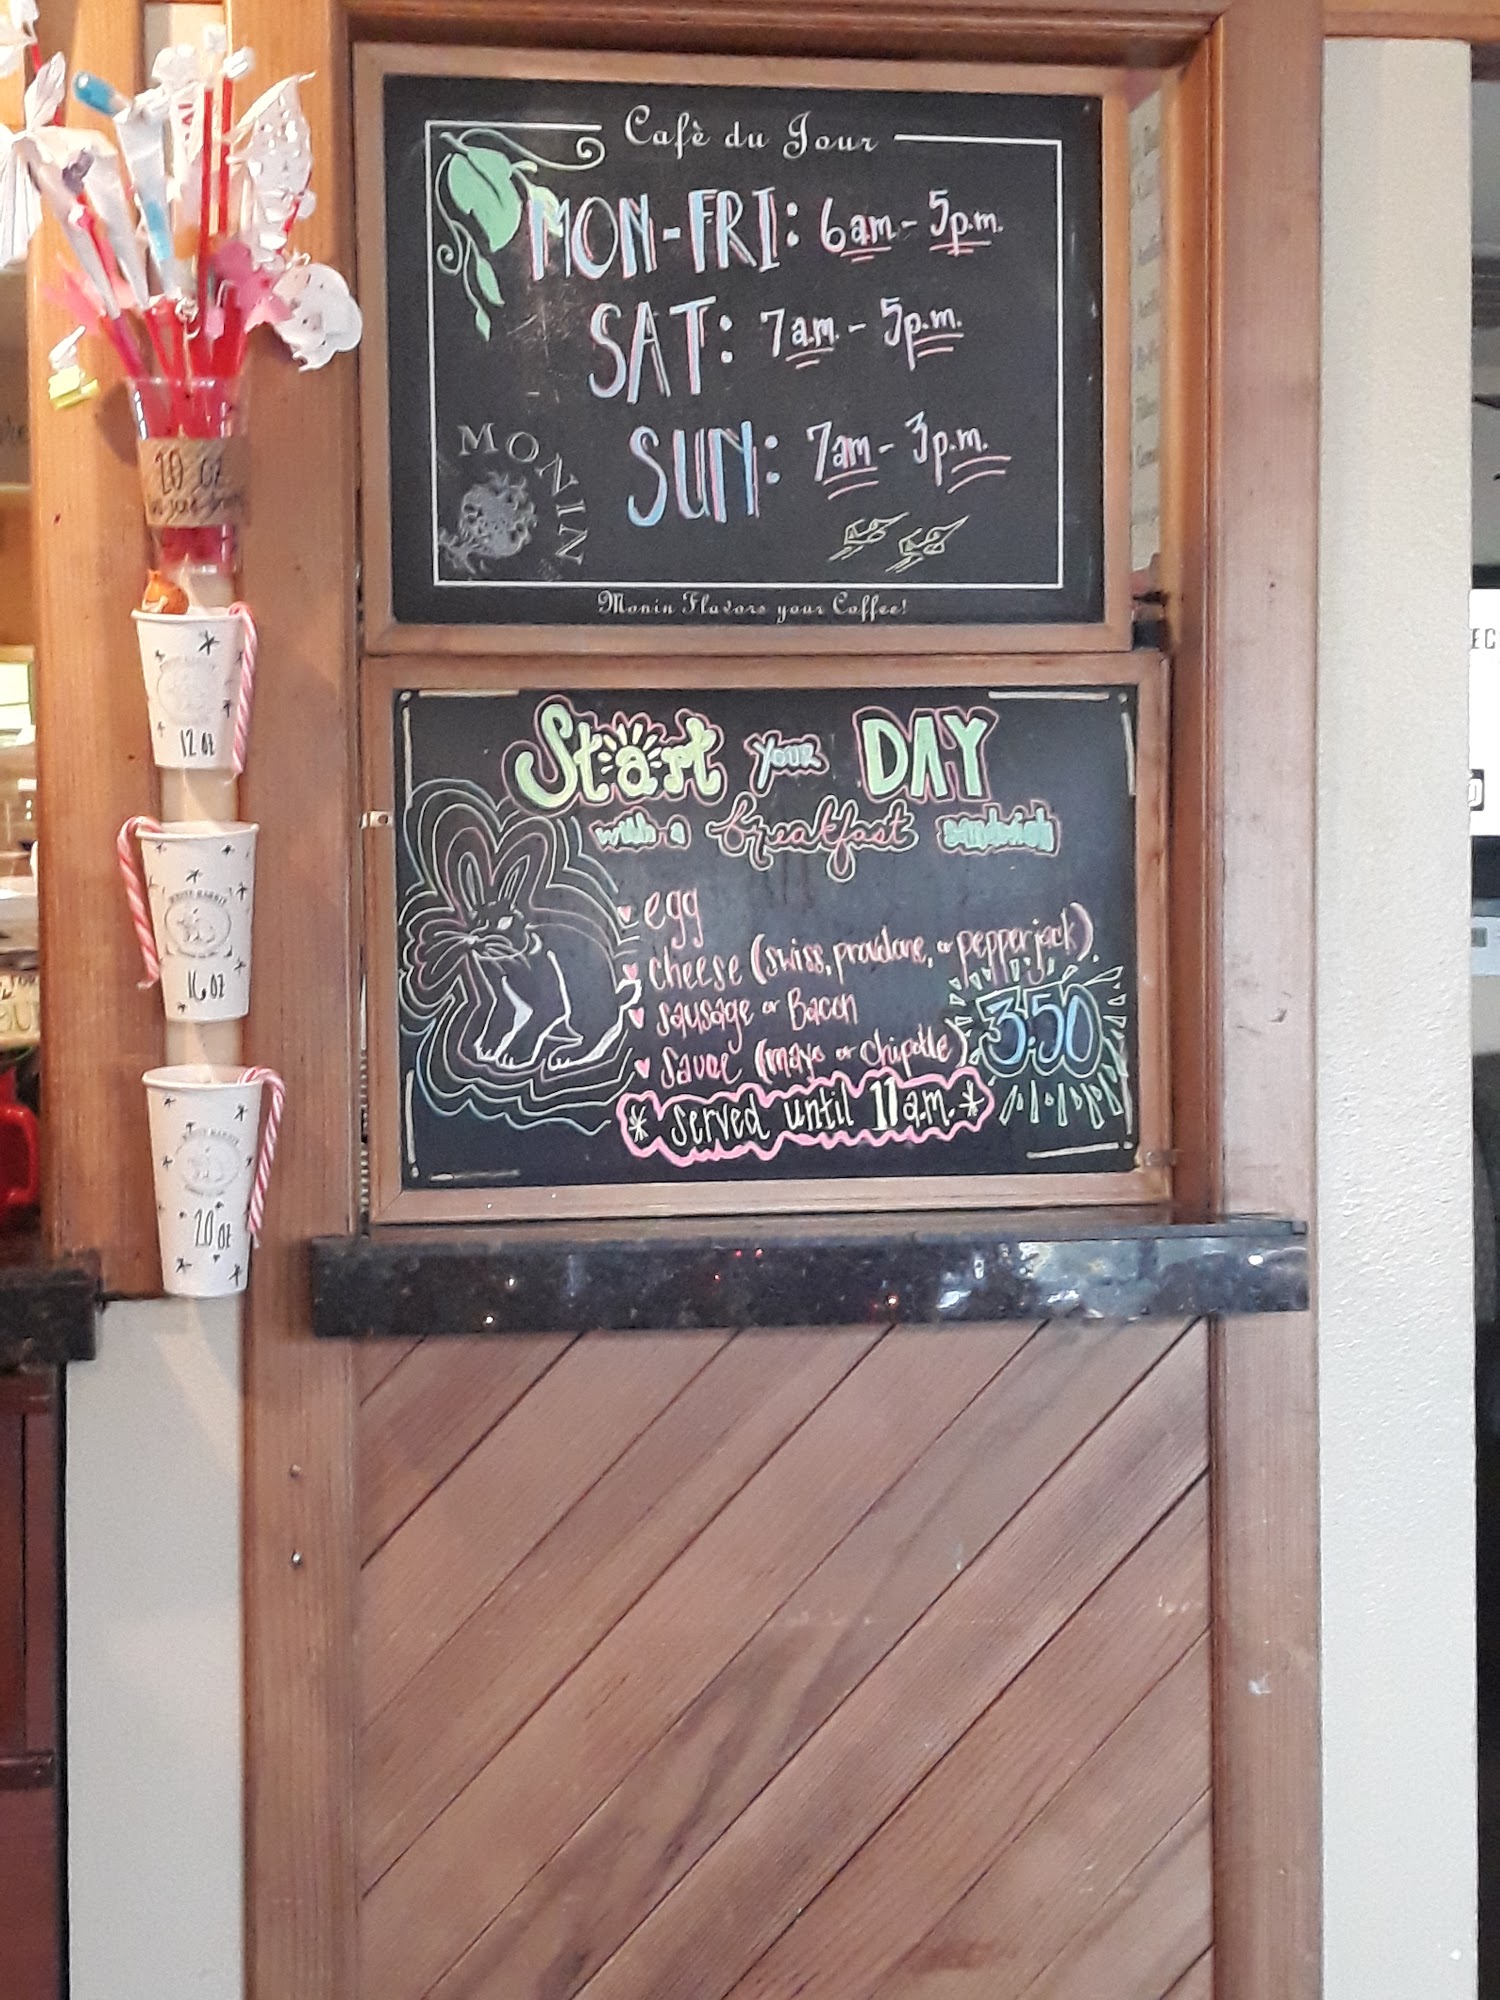 Cafè du Jour
MON-FRI: 6am - 5p.m.
SAT: 7a.m. - 5p.m.
SUN: 7am - 3p.m.
MONIN
Monin Flavors your Coffee!
Start your DAY
with a breakfast sandwich
egg
cheese (swiss, provolone, or pepperjack)
sausage or Bacon
Sauce (mayo or chipotle)
3.50
* served until 11 a.m. *
20 oz
12 oz
WHITE RABBIT
16 oz
WHITE RABBIT
20 oz
EC